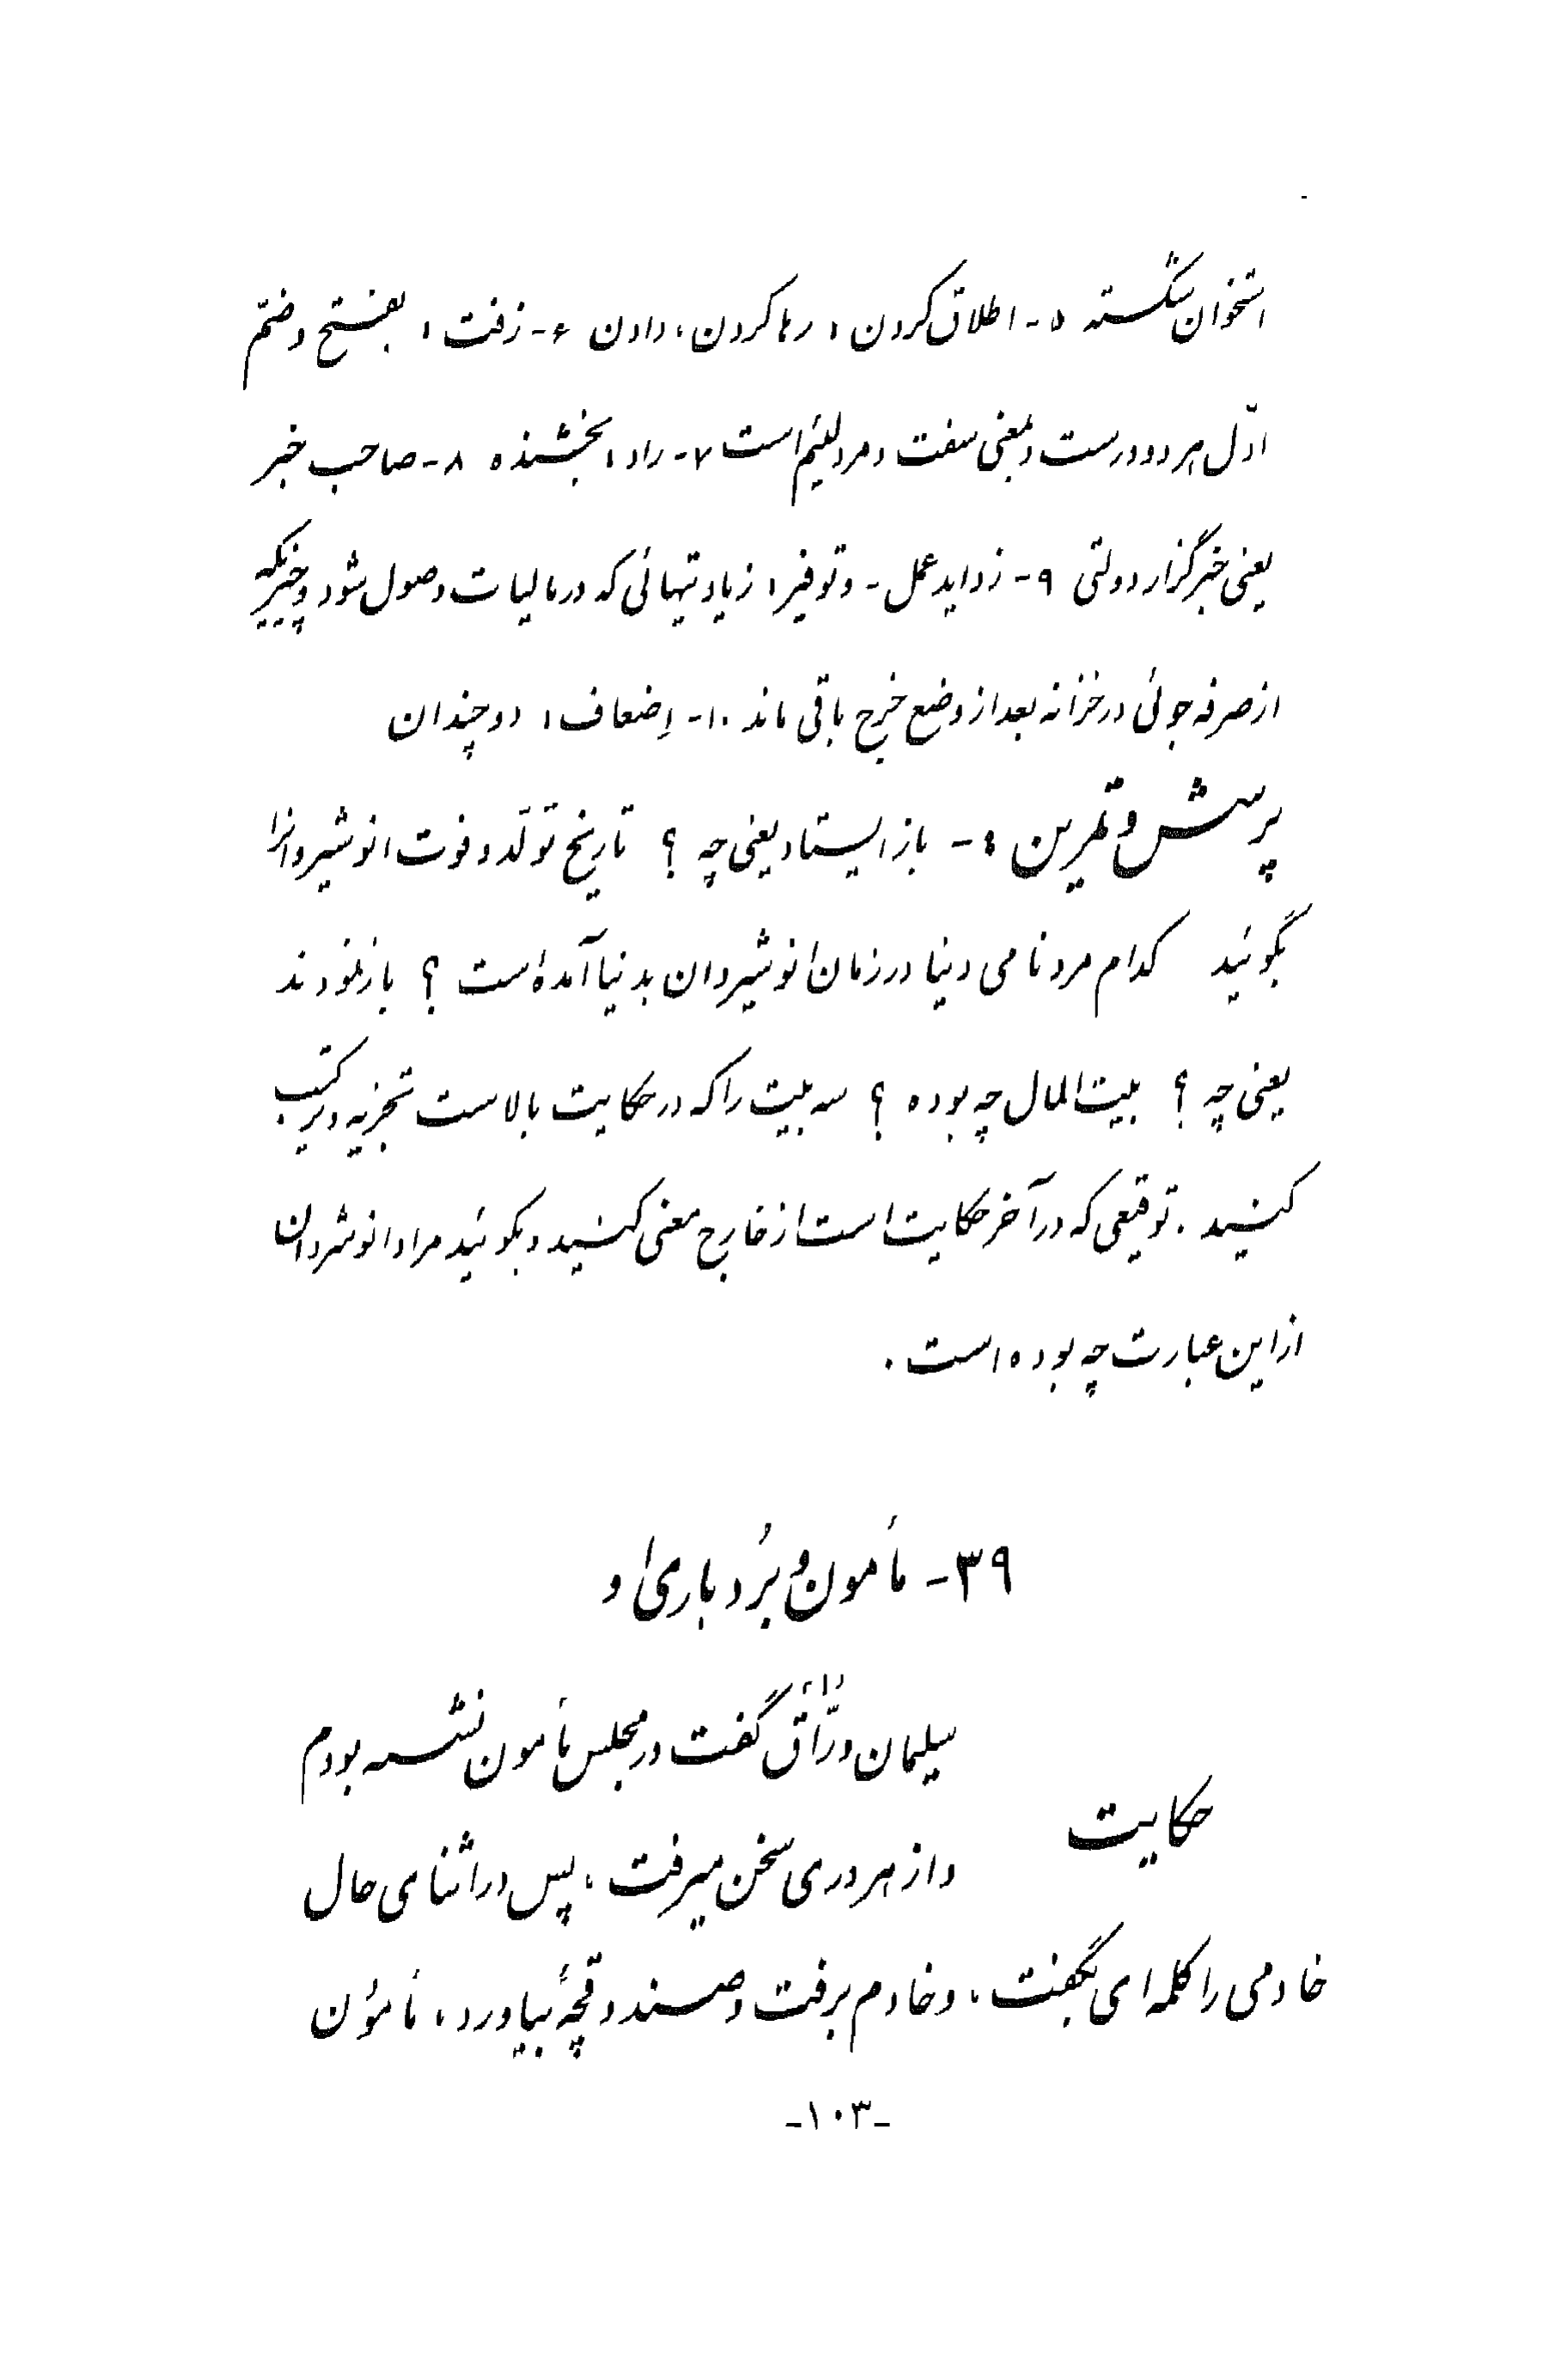 استخوان شکسته ۵- اطلاق کردن : رها کردن، دادن ۶- زفت : بفتح و ضمّ
اوّل هر دو درست و بمعنی سفت و مرد لئیم است ۷- راد : بخشنده ۸- صاحب خبر
یعنی خبرگزار دولتی ۹- زواید عمل - و توفیر : زیادتیهائی که در مالیات وصول شود و چیزیکه
از صرفه جوئی در خزانه بعد از وضع خرج باقی ماند ۱۰- اِضعاف : دو چندان
پرسش و تمرین :- باز ایستاد یعنی چه ؟ تاریخ تولّد و فوت انوشیروانرا
بگوئید کدام مرد نامی دنیا در زمان انوشیروان بدنیا آمده است ؟ باز نمودند
یعنی چه ؟ بیت‌المال چه بوده ؟ سه بیت را که در حکایت بالاست تجزیه و ترکیب
کنید . توقیعی که در آخر حکایت است از خارج معنی کنید و بگوئید مراد انوشروان
از این عبارت چه بوده است .
۳۹- مأمون و بُردباری او
سلیمان ورّاق (۱) گفت در مجلس مأمون نشسته بودم
حکایت
و از هر دری سخن میرفت ، پس در اثنای حال
خادمی را کلمه‌ای بگفت ، و خادم برفت و صندوقچهٔ بیاورد ، مأمون
-۱۰۳-